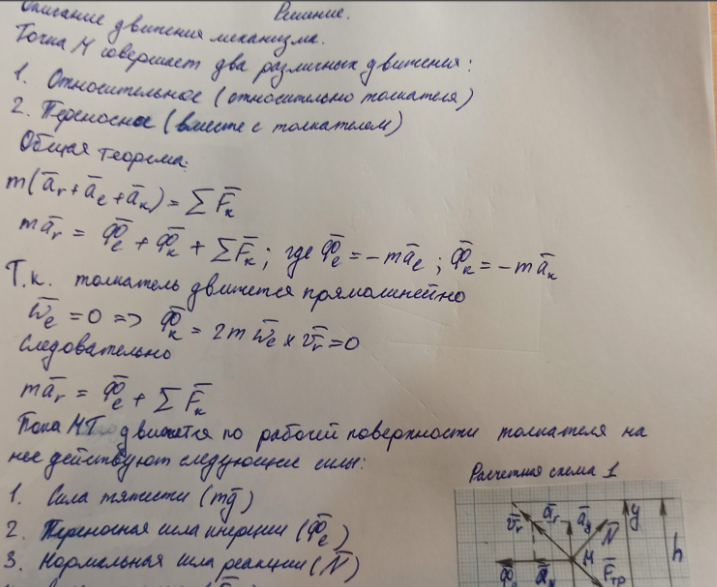 Решение.
Описание движения механизма.
Точка М совершает два различных движения:
1. Относительное (относительно толкателя)
2. Переносное (вместе с толкателем)
Общая теорема:
m(a̅r + a̅e + a̅k) = ∑F̅k
ma̅r = Ф̅e + Ф̅k + ∑F̅k; где Ф̅e = -ma̅e; Ф̅k = -ma̅k
Т.к. толкатель движется прямолинейно
ω̅e = 0 => Ф̅k = 2mω̅e × v̅r = 0
Следовательно
ma̅r = Ф̅e + ∑F̅k
Пока МТ движется по рабочей поверхности толкателя на
нее действуют следующие силы:
Расчетная схема 1
1. Сила тяжести (mg̅)
2. Переносная сила инерции (Ф̅e)
3. Нормальная сила реакции (N̅)
v̅r a̅r a̅y N̅ y h
M F̅тр
Ф̅e a̅x